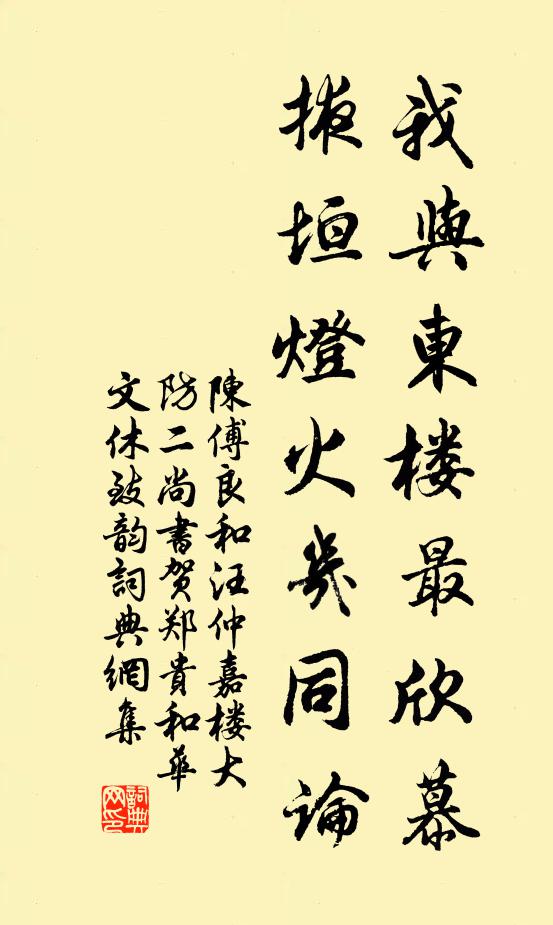 我與東楼最欣慕
掖垣燈火幾同論
陳傅良和汪仲嘉楼大
防二尚書贺郑貴和華
文休致韵詞典網集
詞典网印